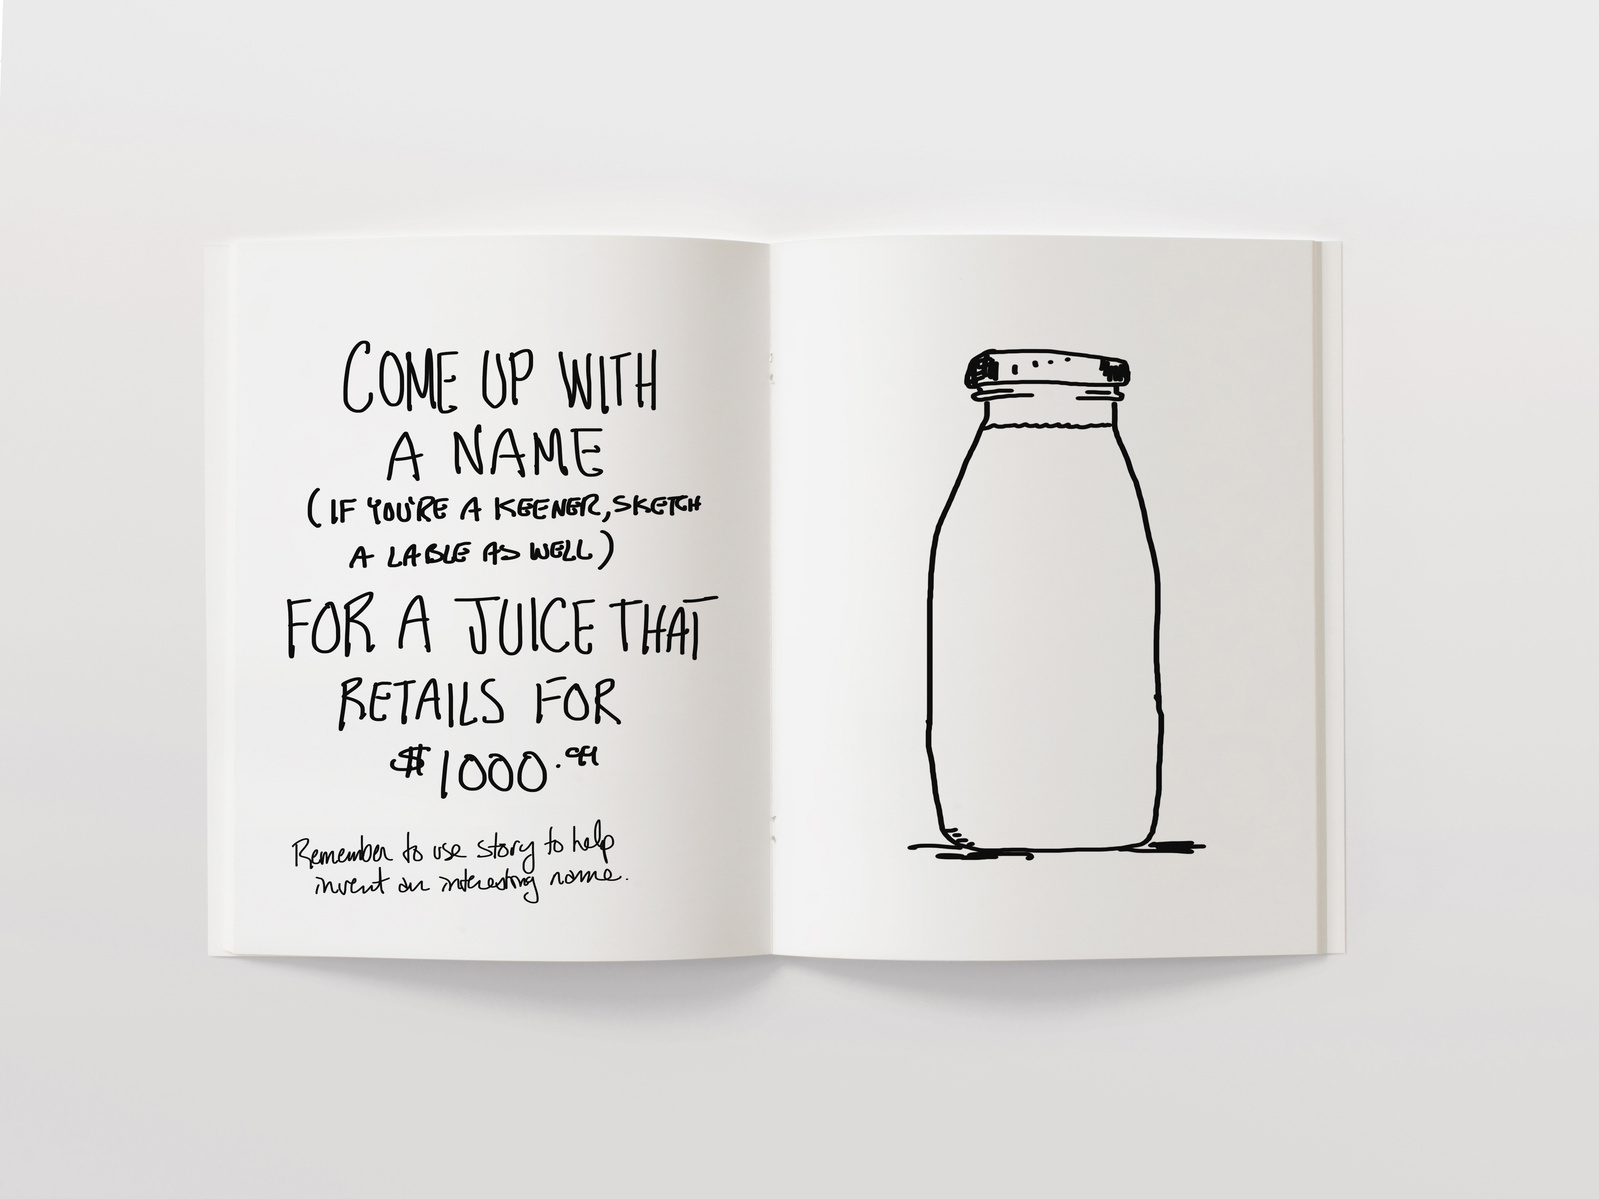 COME UP WITH
A NAME
(IF YOU'RE A KEENER, SKETCH
A LABLE AS WELL)
FOR A JUICE THAT
RETAILS FOR
$1000.99
Remember to use story to help
invent an interesting name.